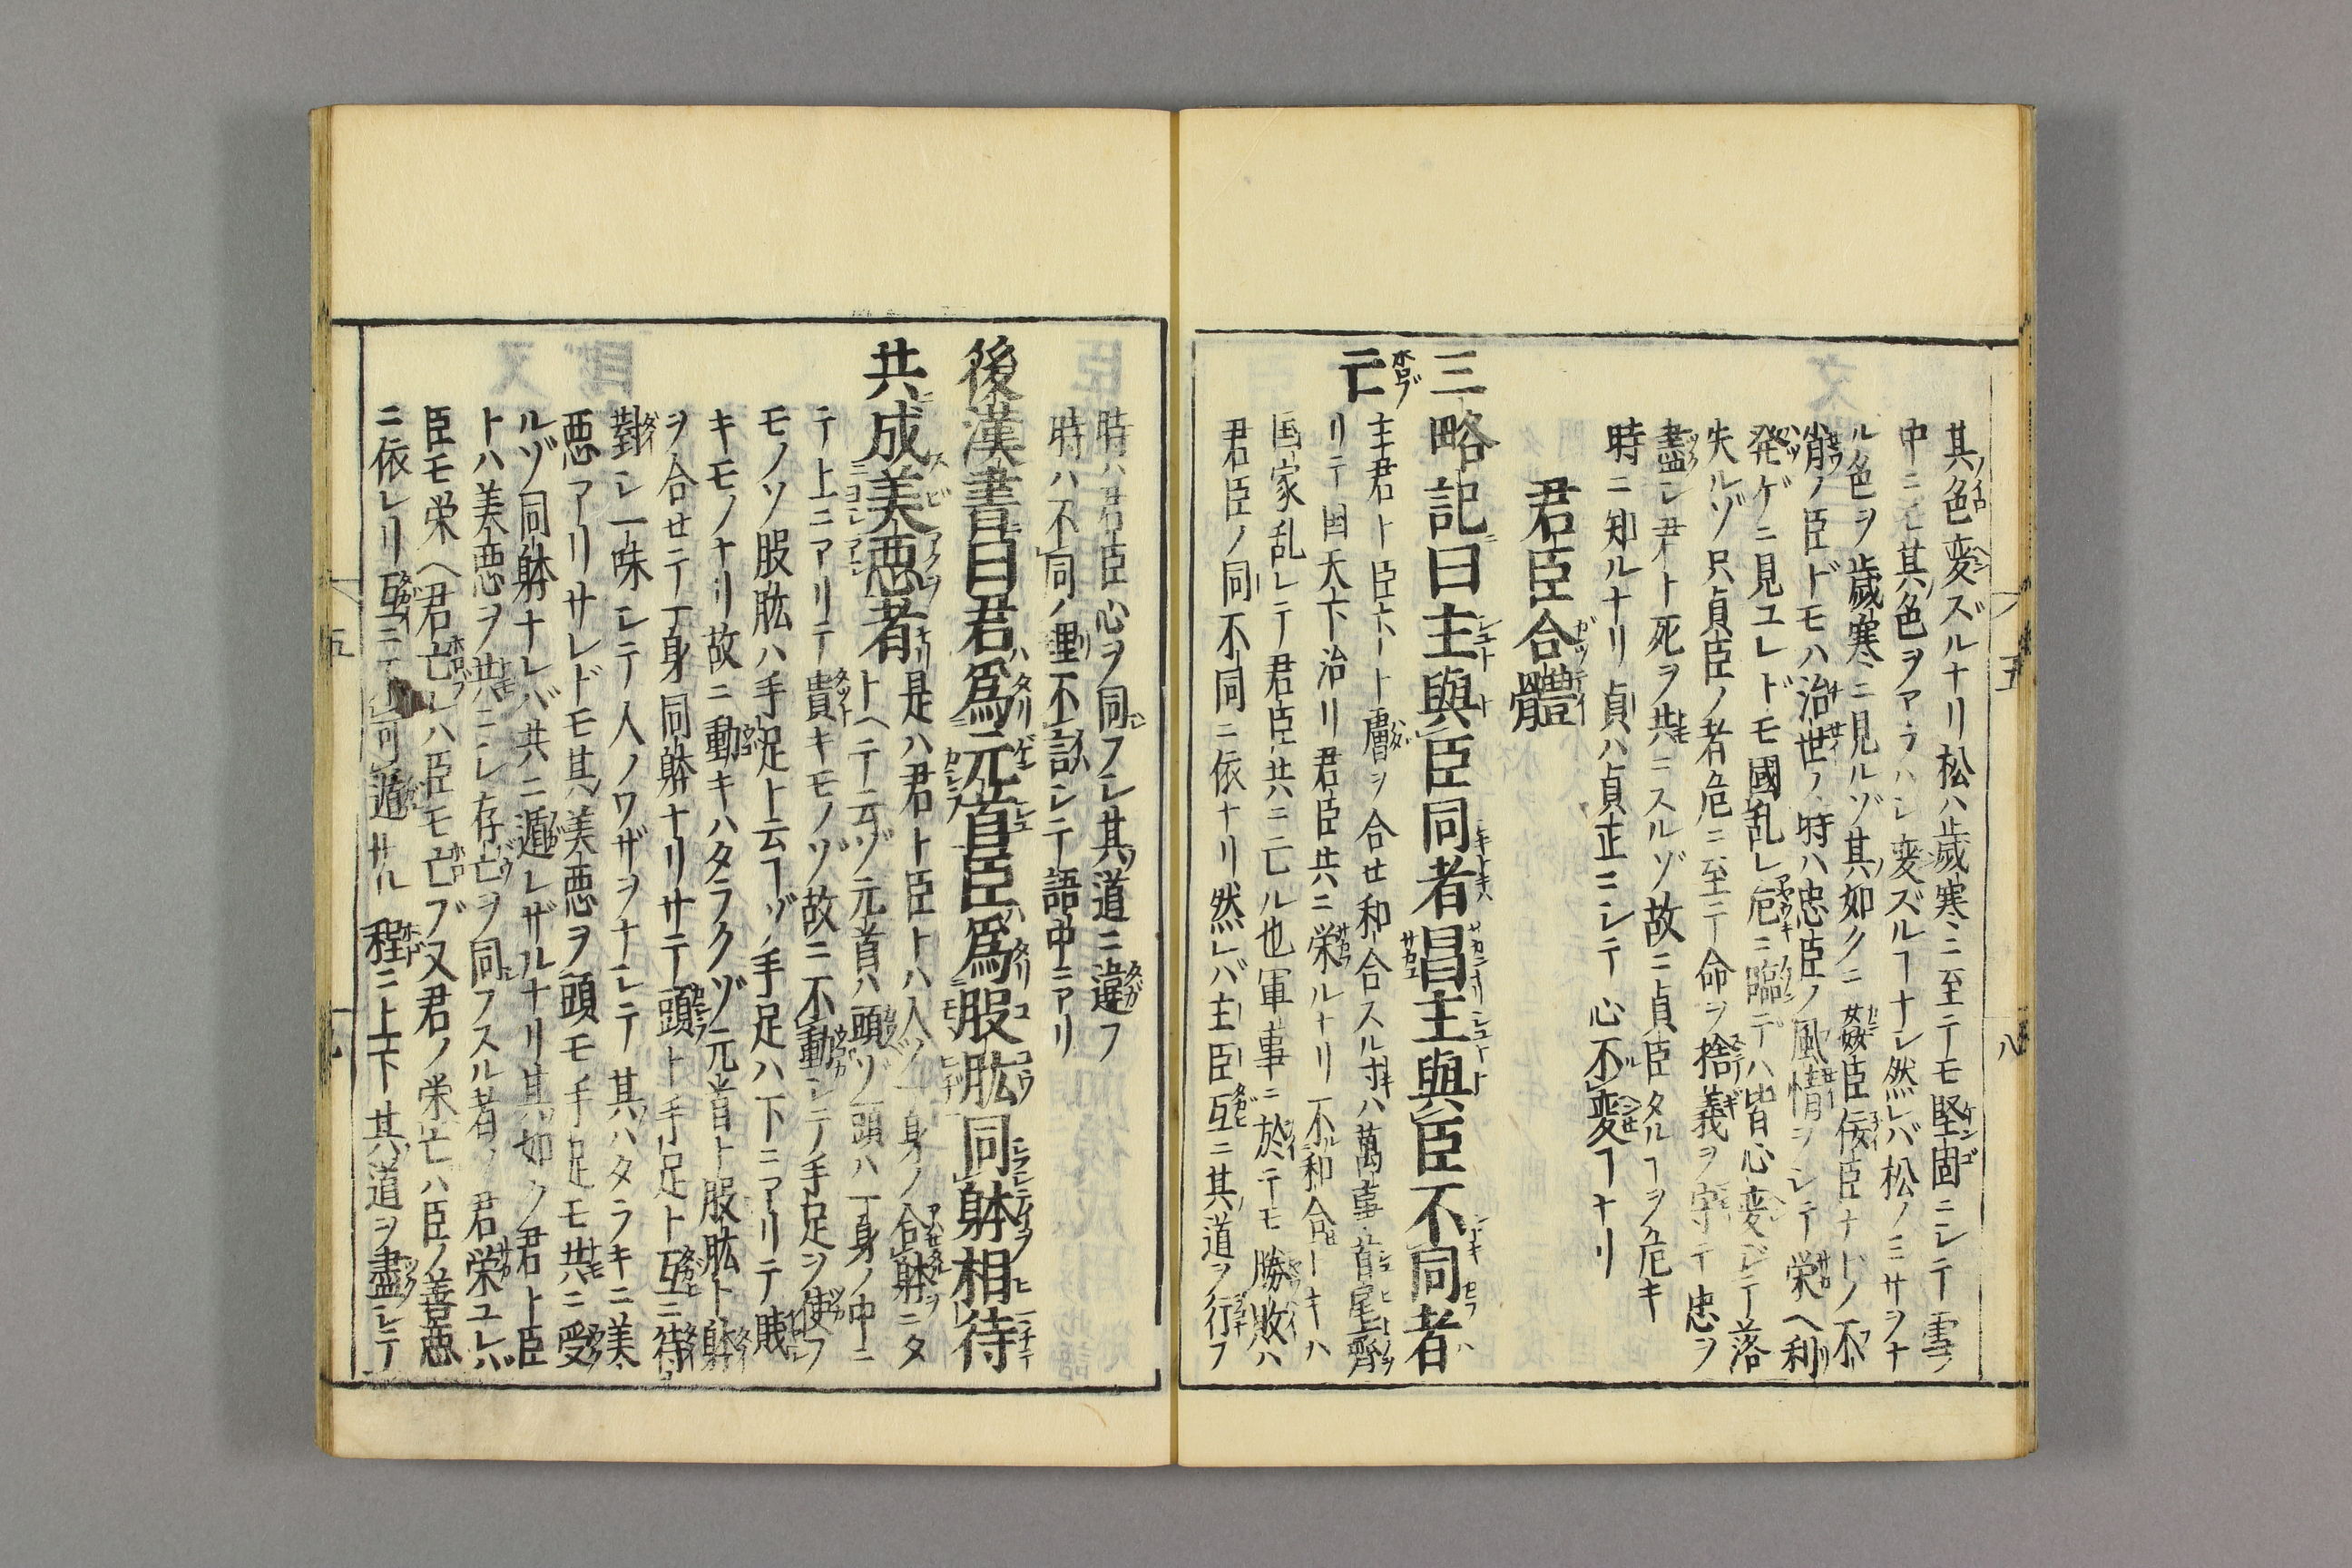 其色変ズルナリ松ハ歳寒ニ至テモ堅固ニシテ雪ノ
中ニモ其色ヲアラハシ変ズルヿナシ然レバ松ノミサヲナ
ル色ヲ歳寒ニ見ルゾ其如クニ姦臣佞臣ナドノ不
肖ノ臣ドモハ治世ノ時ハ忠臣ノ風情ヲシテ栄ヘ利
発ゲニ見ユレドモ國乱レ危ニ臨デハ皆心変ジテ落
失ルゾ只貞臣ノ者危ニ至テ命ヲ捨義ヲ守テ忠ヲ
盡シ君ト死ヲ共ニスルゾ故ニ貞臣タルヿヲ危キ
時ニ知ルナリ貞ハ貞正ニシテ心不変ヿナリ
君臣合體
三略記曰主與臣同者昌主與臣不同者
亡
主君ト臣下ト膚ヲ合せ和合スル寸ハ萬事首尾齊
リテ国天下治リ君臣共ニ栄ルナリ不和合トキハ
国家乱レテ君臣共ニ亡ル也軍事ニ於テモ勝敗ハ
君臣ノ同不同ニ依ナリ然レバ主臣互ニ其道ヲ行フ
時ハ君臣心ヲ同フシ其道ニ違フ
時ハ不同ノ理不言シテ語中ニアリ
後漢書曰君爲元首臣爲股肱同躰相待
共成美悪者
是ハ君ト臣トハ人ノ一身ノ合躰ニタ
トヘテ云ゾ元首ハ頭ゾ頭ハ一身ノ中ニ
テ上ニアリテ貴キモノゾ故ニ不動シテ手足ヲ使フ
モノソ股肱ハ手足ト云ヿゾ手足ハ下ニアリテ賎
キモノナリ故ニ動キハタラクゾ元首ト股肱ト躰
ヲ合せテ一身同躰ナリサテ頭ト手足ト互ニ待
對シ一味シテ人ノワザヲナシテ其ハタラキニ美
悪アリサレドモ其美悪ヲ頭モ手足モ共ニ受
ルゾ同躰ナレバ共ニ遁レザルナリ其如ク君ト臣
トハ美悪ヲ共ニシ存亡ヲ同フスル者ノ君栄ユレバ
臣モ栄ヘ君亡レハ臣モ亡ブ又君ノ栄亡ハ臣ノ善悪
ニ依レリ互ニ可遁サル程ニ上下其道ヲ盡シテ